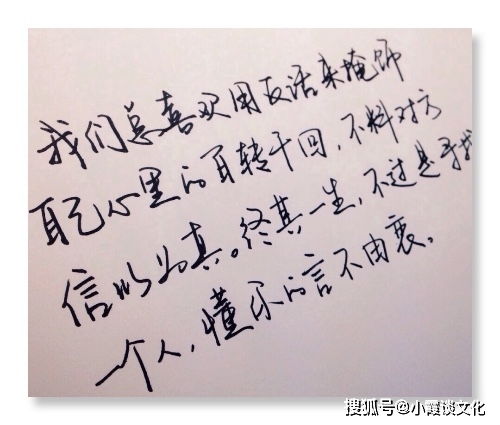 我们总喜欢用反话来掩饰
自己心里的百转千回，不料对方
信以为真。终其一生，不过是寻找
一个人，懂你的言不由衷。
搜狐号@小霞谈文化